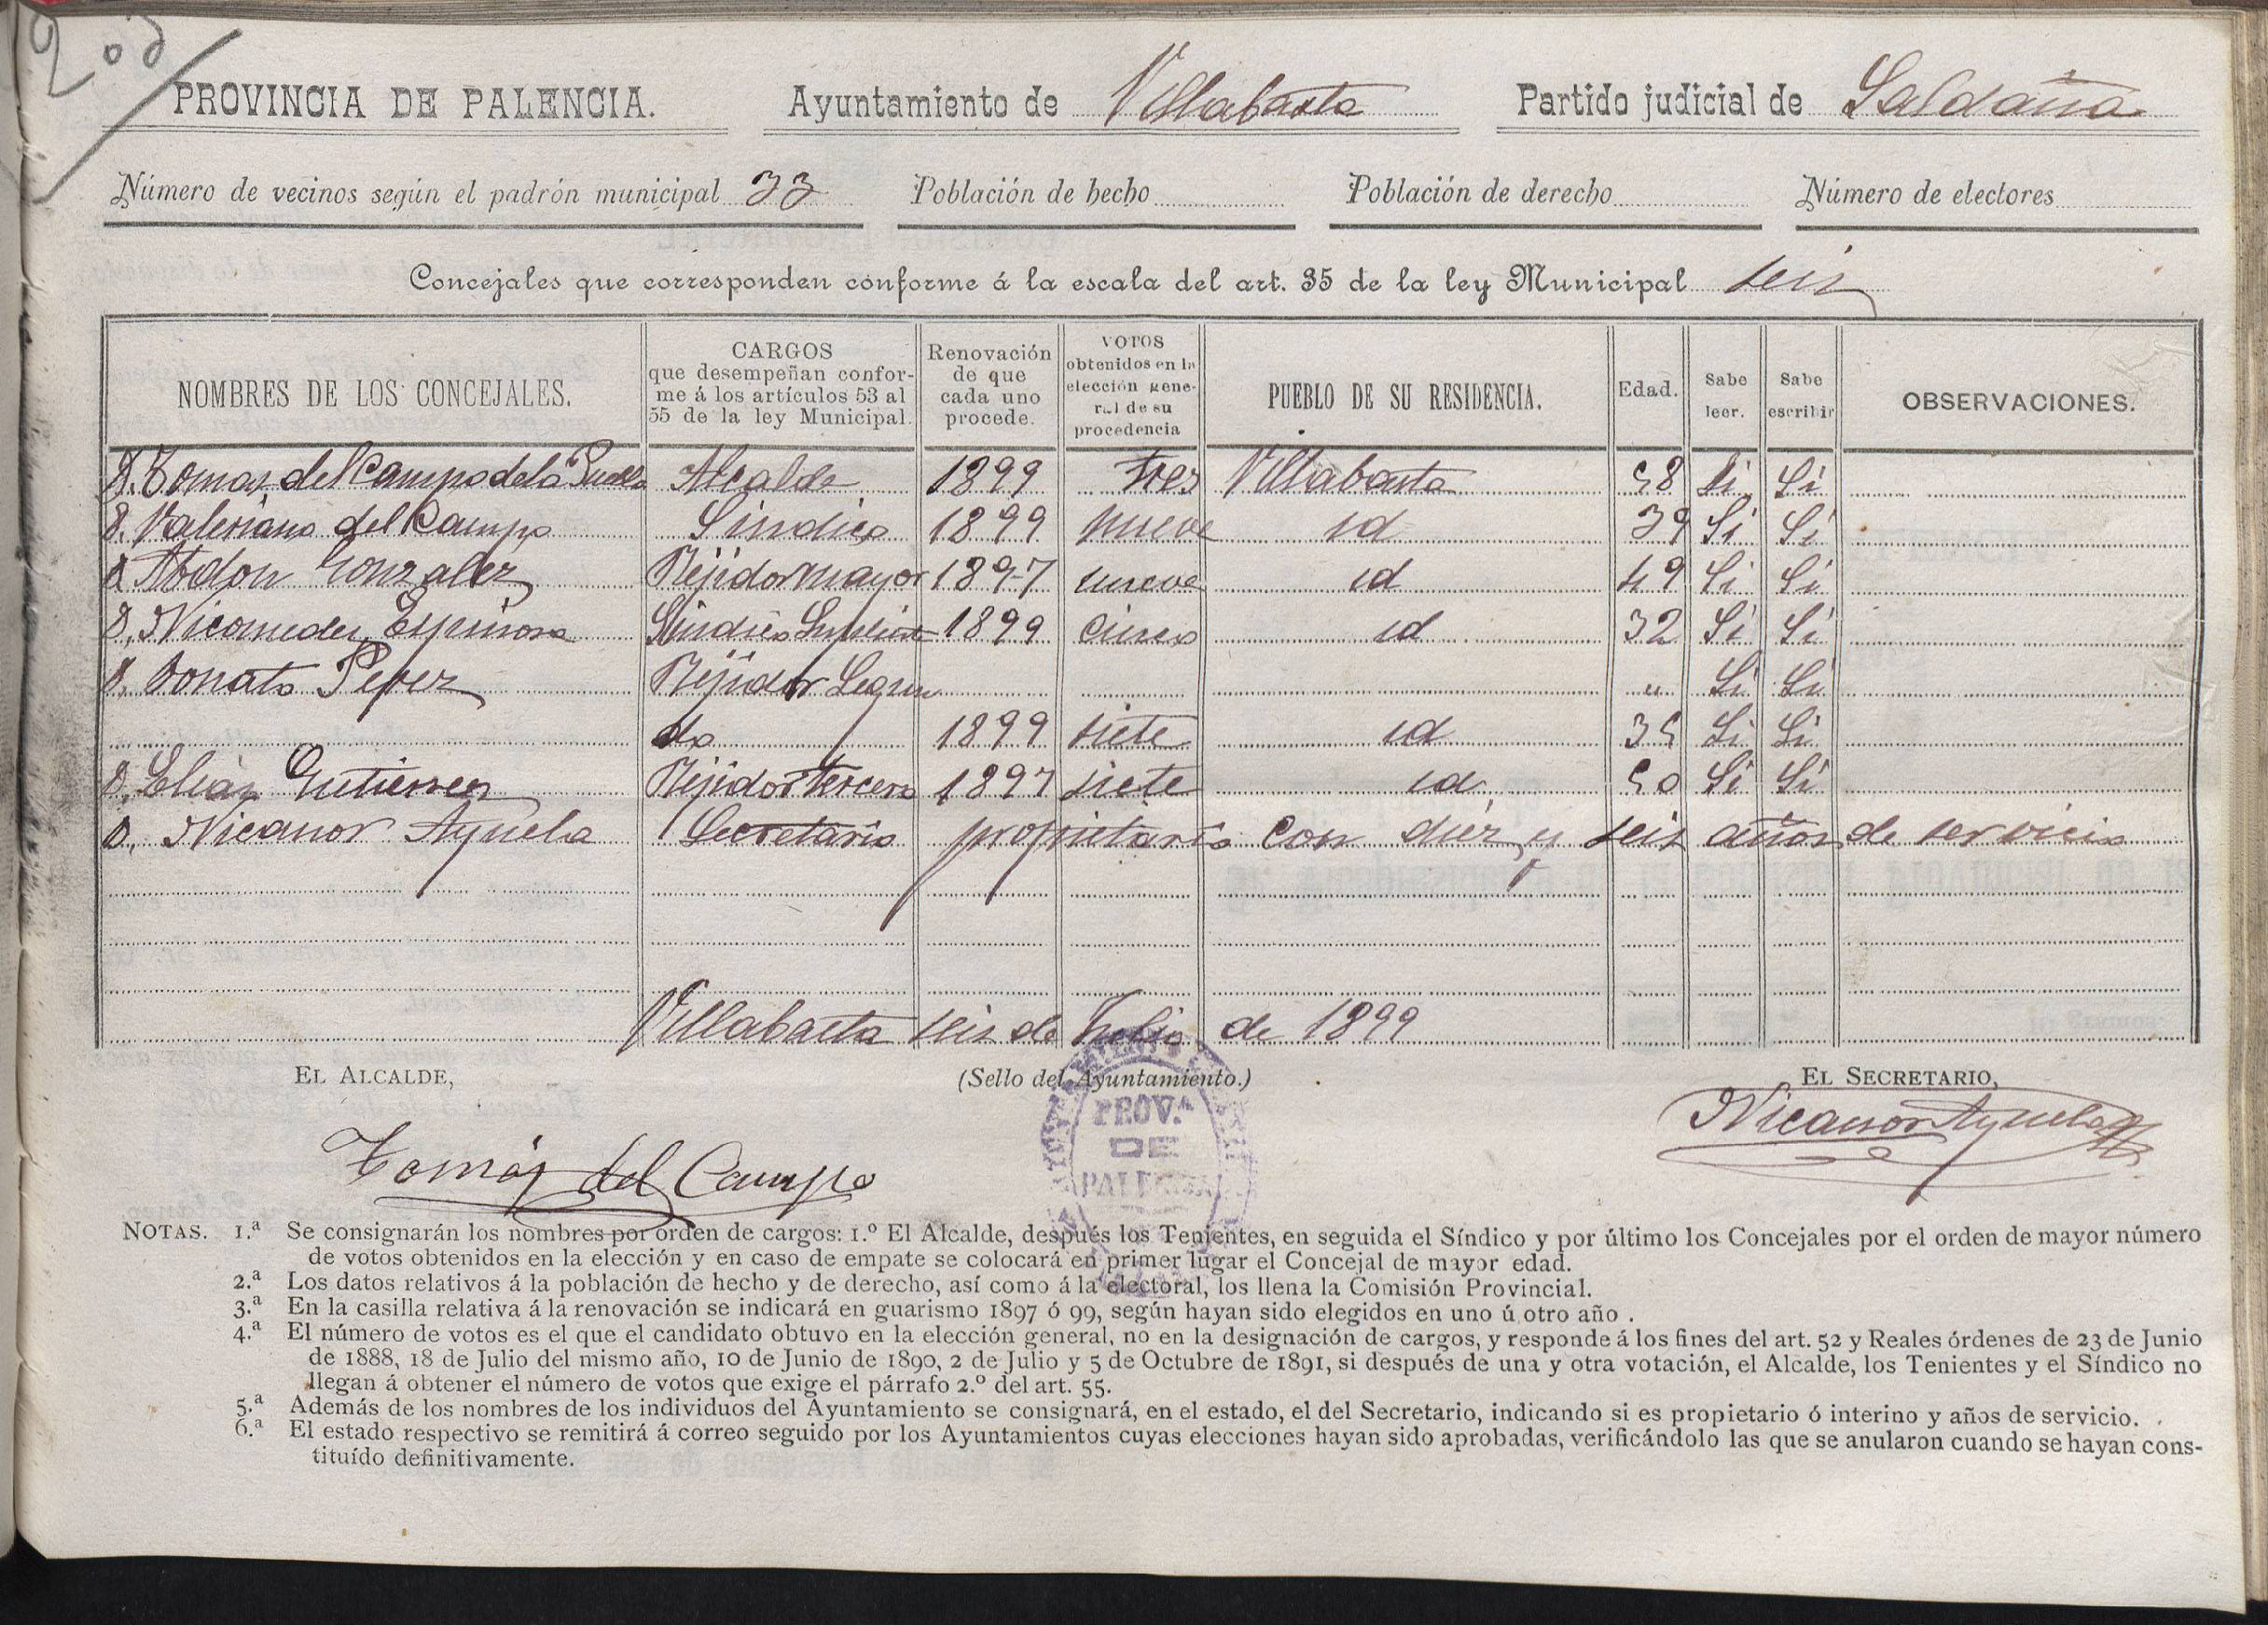 203
PROVINCIA DE PALENCIA. Ayuntamiento de Villabasta Partido judicial de Saldaña
Número de vecinos según el padrón municipal 33 Población de hecho Población de derecho Número de electores
Concejales que corresponden conforme á la escala del art. 35 de la ley Municipal seis
NOMBRES DE LOS CONCEJALES. CARGOS que desempeñan conforme á los artículos 53 al 55 de la ley Municipal. Renovación de que cada uno procede. VOTOS obtenidos en la elección general de su procedencia PUEBLO DE SU RESIDENCIA. Edad. Sabe leer. Sabe escribir OBSERVACIONES.
D. Tomas del Campo de la Puebla Alcalde 1899 tres Villabasta 58 Si Si
D. Valeriano del Campo Sindico 1899 nueve id 39 Si Si
D. Abdon Gonzalez Rejidor mayor 1897 nueve id 49 Si Si
D. Nicomedes Espinosa Sindico Suplente 1899 cinco id 32 Si Si
D. Donato Perez Rejidor Segun " Si Si
do 1899 siete id 35 Si Si
D. Elias Gutierrez Rejidor tercero 1897 siete id 50 Si Si
D. Nicanor Ayuela Secretario propietario con diez y seis años de servicio
Villabasta seis de Julio de 1899
EL ALCALDE, (Sello del Ayuntamiento.) EL SECRETARIO,
PROV.ª
DE
PALENCIA
Tomás del Campo Nicanor Ayuela
NOTAS. 1.ª Se consignarán los nombres por orden de cargos: 1.º El Alcalde, después los Tenientes, en seguida el Síndico y por último los Concejales por el orden de mayor número
de votos obtenidos en la elección y en caso de empate se colocará en primer lugar el Concejal de mayor edad.
2.ª Los datos relativos á la población de hecho y de derecho, así como á la electoral, los llena la Comisión Provincial.
3.ª En la casilla relativa á la renovación se indicará en guarismo 1897 ó 99, según hayan sido elegidos en uno ú otro año .
4.ª El número de votos es el que el candidato obtuvo en la elección general, no en la designación de cargos, y responde á los fines del art. 52 y Reales órdenes de 23 de Junio
de 1888, 18 de Julio del mismo año, 10 de Junio de 1890, 2 de Julio y 5 de Octubre de 1891, si después de una y otra votación, el Alcalde, los Tenientes y el Síndico no
llegan á obtener el número de votos que exige el párrafo 2.º del art. 55.
5.ª Además de los nombres de los individuos del Ayuntamiento se consignará, en el estado, el del Secretario, indicando si es propietario ó interino y años de servicio.
6.ª El estado respectivo se remitirá á correo seguido por los Ayuntamientos cuyas elecciones hayan sido aprobadas, verificándolo las que se anularon cuando se hayan cons-
tituído definitivamente.